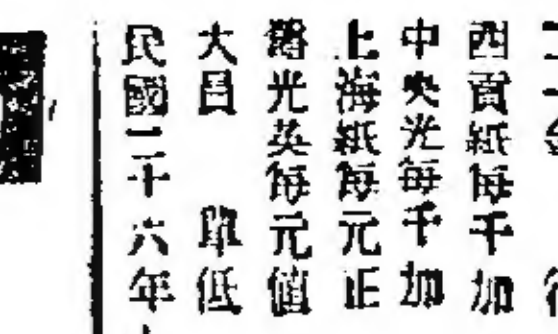 西貢紙每千加
中央光每千加
上海紙每元正
光英每元值
大員 單低
民國二十六年